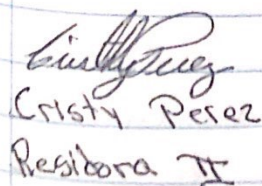 Cristy Perez
Residora II